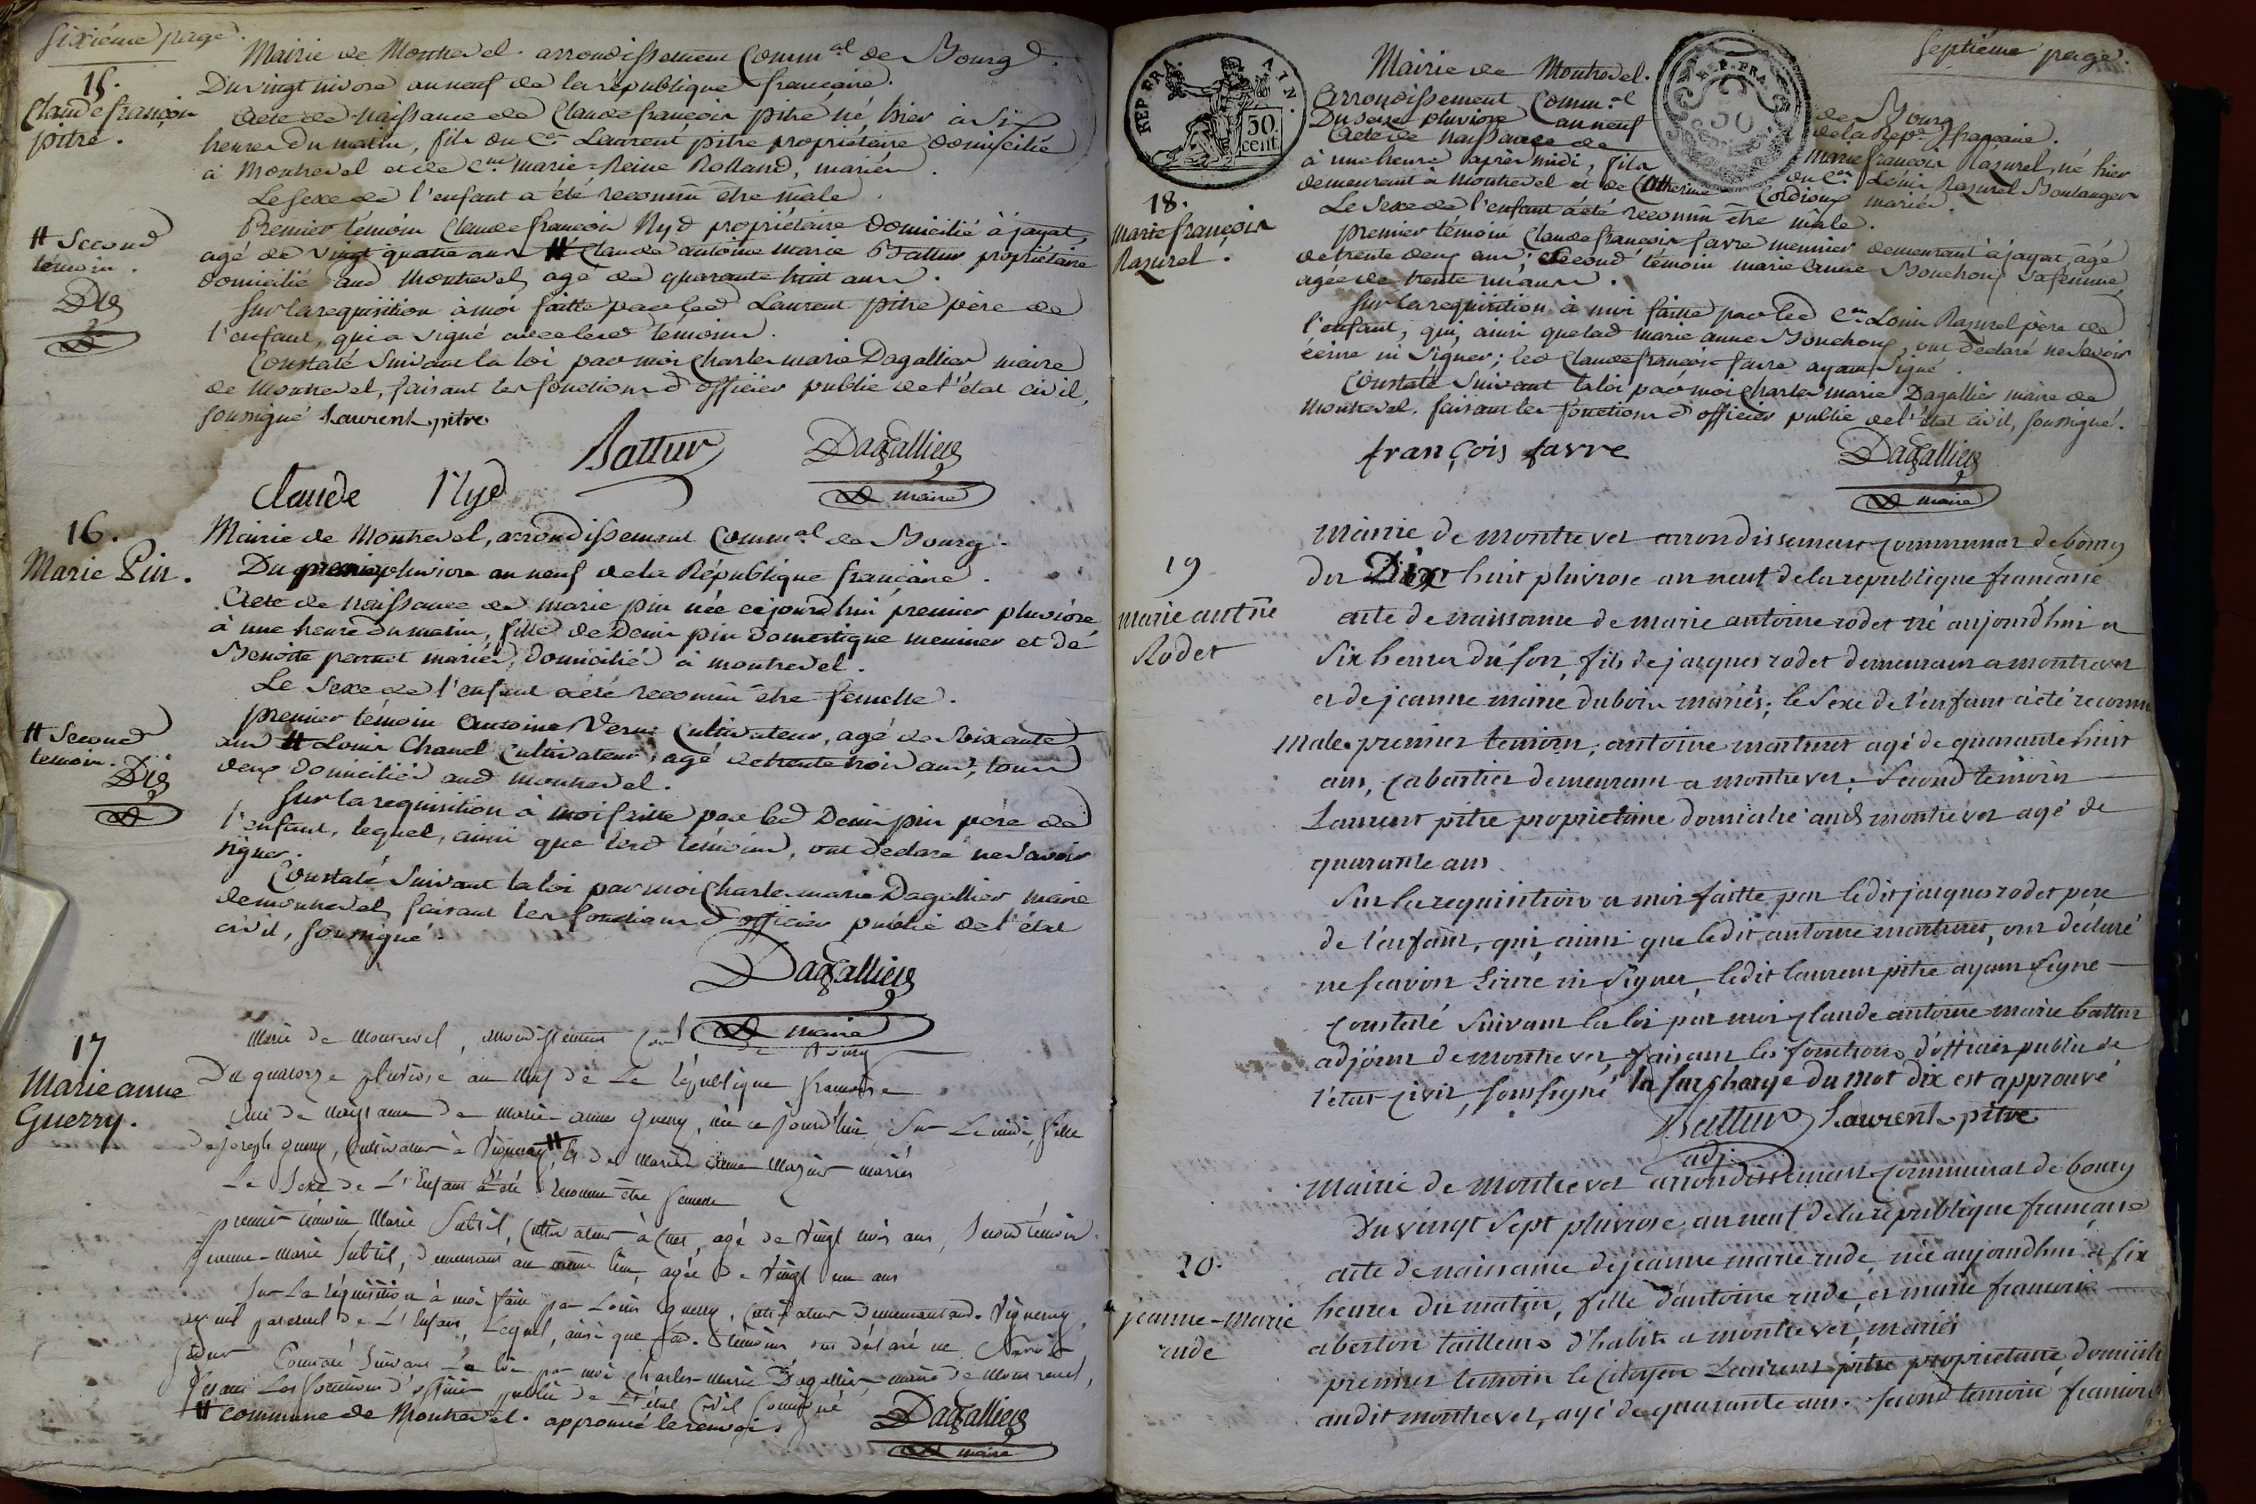 Sixiéme page.
15.
Claude françois
pitre.
Mairie de Montrevel. arrondissement Comm.al de Bourg
Du vingt nivose an neuf de la république françaire.
Acte de naissance de Claude françois pitre né hier à Six
heures du matin, fils du C.en Laurent pitre propriétaire domicilié
à Montrevel et de C.ne marie-Reine Rolland, mariés.
Le sexe de l'enfant a été reconnû être mâle.
Premier témoin Claude françois Nyd propriétaire domicilié à jayat,
agé de vingt quatre ans # Claude antoine marie Battur propriétaire
domicilié aud Montrevel, agé de quarante huit ans.
# Second
témoin.
Dig
Sur la requisition à moi faitte par led Laurent pitre père de
l'enfant, qui a signé avec lesd temoins.
Constaté Suivant la loi par moi Charles marie Dagallier maire
de Montrevel, faisant les fonctions d'officier public de l'état civil,
soussigné Laurent pitre
Battur Dagallier
Claude Nyd maire
16.
Marie Pin.
Mairie de Montrevel, arrondissement Comm.al de Bourg.
Du premier pluviose an neuf de la République françaire.
Acte de naissance de marie pin née cejourd'hui premier pluviôse
à une heure du matin, fille de Denis pin domestique meunier et de
Benoitte perret mariés, domiciliés à montrevel.
Le Sexe de l'enfant a été reconnû être femelle.
premier témoin Antoine Verne Cultivateur, agé de Soixante
ans # Louis Chanel Cultivateur, agé de trente trois ans, tous
deux domiciliés aud montrevel.
# Second
temoin.
Dig
Sur la requisition à moi faitte par led Denis pin père de
l'enfant, lequel, ainsi que lesd témoins, ont déclaré ne Savoir
signer.
Constaté Suivant la loi par moi Charles marie Dagallier maire
de montrevel, faisant les fonctions d'officier public de l'état
civil, soussigné.
Dagallier
maire
17
Marie anne
Guerry.
Mairie de Montrevel, arrondissement Com.l de Bourg
Du quatorze pluviose an neuf de La République francaise
Acte de Naissance de marie-anne guerry, née ce jourd'hui, Sur Le midi, fille
de joseph guerry, Cultivateur à Vigneray # et de marie anne mariés
Le Sexe de L'Enfant a été reconnu être femme
premier témoin Marie Subtil, Cultivateur à Cuet, agé de Vingt trois ans, Second témoin
jeanne-marie Subtil, demeurant au même lieu, agée de vingt un ans
Sur La réquisition à moi faite par Louis guerry, Cultivateur demeurant aud. Vigneray,
ayeul paternel de L'Enfant, Lequel, ainsi que les d. témoins ont déclaré ne Savoir
signer Constaté Suivant La loi par moi Charles-marie Dagallier maire de Montrevel,
fesant Les fonctions d'officier public de L'état Civil Soussigné
# commune de Montrevel. approuvé le renvoi.
Dagallier
maire
Septiéme page.
REP. FRA. AIN.
50
cent.
REP. FRA.
50
18.
Marie françois
Razurel.
Mairie de Montrevel.
Arrondissement Comm.al de Bourg
Du seize pluviose an neuf de la Rép.e françaire.
Acte de naissance de marie françois Razurel, né hier
à une heure après midi, fils du C.en Louis Razurel Boulanger
demeurant à Montrevel et de Catherine Cordioux mariés.
Le Sexe de l'enfant a été reconnû être mâle.
premier témoin Claude françois favre meunier demeurant à jayat, agé
de trente deux ans, Second témoin marie anne Bouchoux sa femme,
agée de trente six ans.
Sur la requisition à moi faitte par led C.en Louis Razurel père de
l'enfant, qui, ainsi que lad marie anne Bouchoux, ont déclaré ne Savoir
écrire ni Signer; led Claude françois favre ayant Signé.
Constaté Suivant la loi par moi Charles marie Dagallier maire de
Montrevel. faisant les fonctions d'officier public de l'état civil, soussigné.
françois favre Dagallier
maire
19
marie antne
Rodet
Mairie de montrevel arrondissement communal de bourg
du Dix huit pluviose an neuf de la republique française
acte de naissance de marie antoine rodet né aujourdhui a
Six heures du soir, fils de jacques rodet demeurant a montrevel
et de jeanne marie dubois mariés; le Sexe de l'enfant a été reconnu
Male. premier temoin, antoine martinet agé de quarante huit
ans, cabartier demeurant a montrevel; Second temoin
Laurent pitre proprietaire domicilié aud montrevel agé de
quarante ans.
Sur la requisition a moi faitte par ledit jacques rodet pere
de l'enfant, qui, ainsi que ledit antoine martinet, ont déclaré
ne scavoir Ecrire ni Signer, ledit laurent pitre ayant Signé
Constaté Suivant la loi par moi Claude antoine marie battur
adjoint de montrevel, faisant les fonctions d'officier public de
l'etat civil, soussigné la surcharge du mot dix est approuvé
Battur Laurent pitre
adj.
20.
jeanne-marie
rude
Mairie de montrevel arrondissement communal de bourg
du vingt Sept pluviose an neuf de la republique française
acte de naissance de jeanne marie rude, née aujourdhui a six
heures du matin, fille d'antoine rude, et marie francoise
aberton tailleurs d'habits a montrevel, mariés
premier temoin le Citoyen Laurent pitre proprietaire domicilié
audit montrevel, agé de quarante ans. Second temoin francois